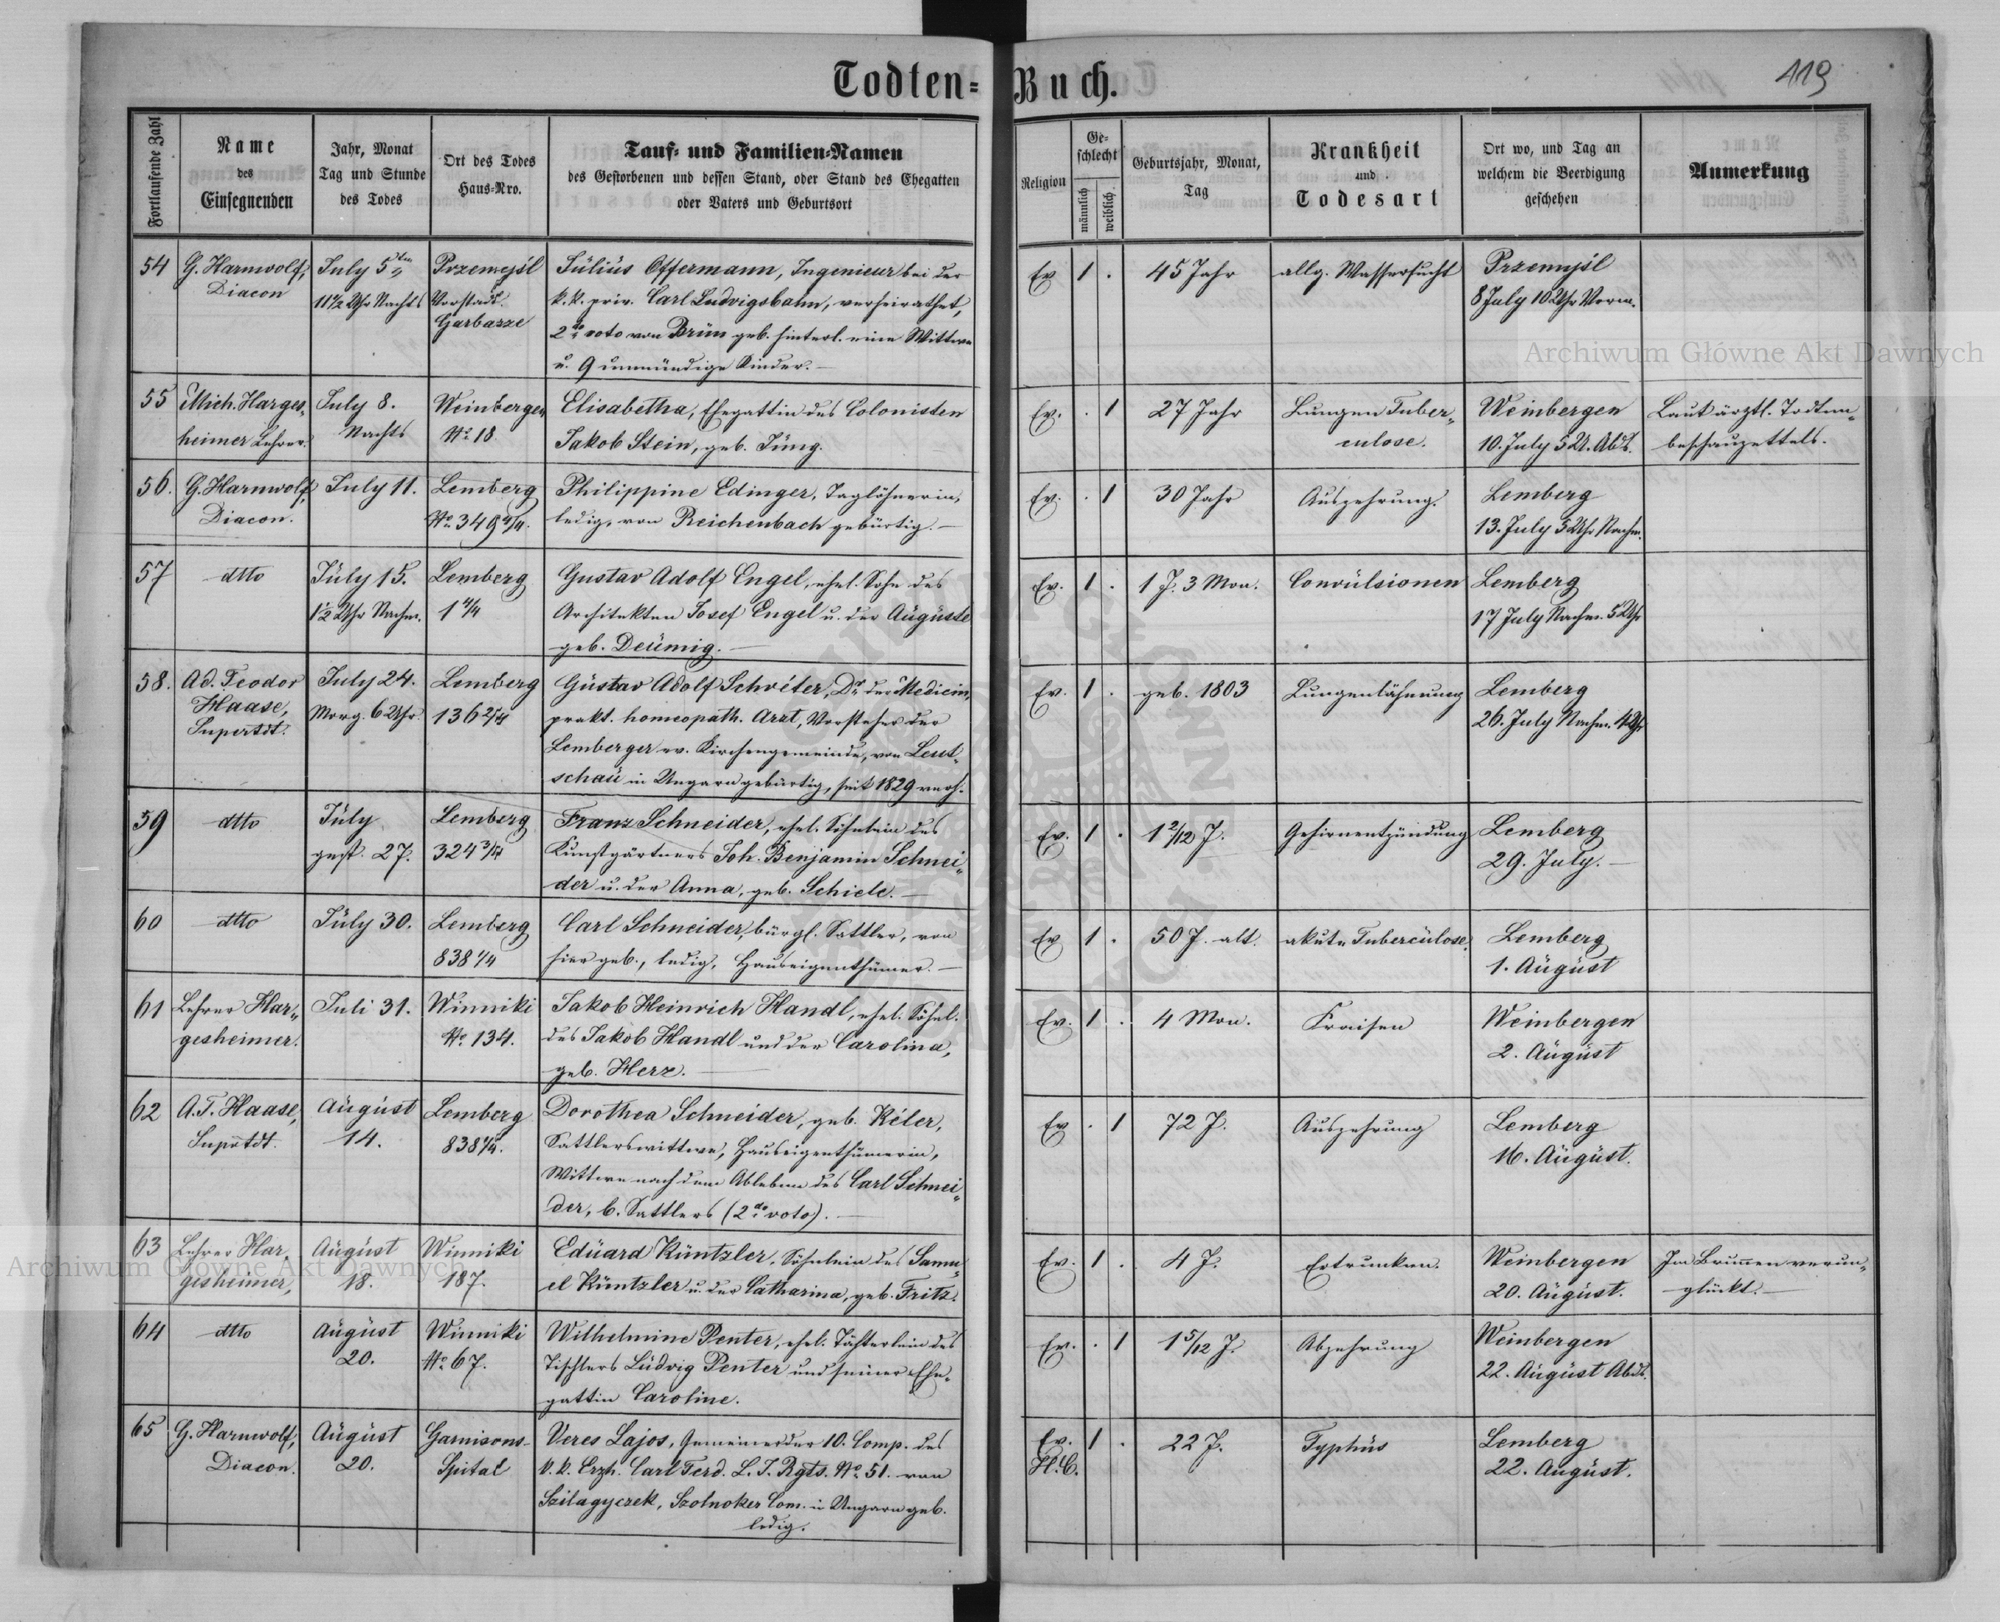 Todten-Buch.
119
Fortlaufende Zahl
Name
des
Einsegnenden
Jahr, Monat
Tag und Stunde
des Todes
Ort des Todes
Haus-Nro.
Tauf- und Familien-Namen
des Gestorbenen und dessen Stand, oder Stand des Ehegatten
oder Vaters und Geburtsort
Religion
Ge-
schlecht
männlich
weiblich
Geburtsjahr, Monat,
Tag
Krankheit
und
Todesart
Ort wo, und Tag an
welchem die Beerdigung
geschehen
Anmerkung
54 G. Harnwolf, July 5ten Przemejsl Julius Offermann, Ingenieur bei der Ev 1 . 45 Jahr allg. Wassersucht Przemysl
Diacon 11½ Uhr Nachts Vorstadt k. k. priv. Carl Ludvigsbahn, verheirathet, 8 July 10 Uhr Vorm.
Garbarze 2do voto von Brün geb. hinterl. eine Wittwe
u. 9 unmündige Kinder.—
55 Mich. Harges- July 8. Weinbergen Elisabetha, Ehegattin des Colonisten Ev. . 1 27 Jahr Lungen Tuber- Weinbergen Laut ärztl. Todten-
heimer Lehrer. Nachts No 18 Jakob Stein, geb. Jung. culose. 10. July 5 U. Abds. beschauzettels.
56. G. Harnwolf, July 11. Lemberg Philippine Edinger, Taglöhnerin, Ev. . 1 30 Jahr Auszehrung. Lemberg
Diacon. No 349 4/4. ledig, von Reichenbach gebürtig.— 13. July 5 Uhr Nachm.
57 dtto July 15. Lemberg Gustav Adolf Engel, ehel. Sohn des Ev. 1 . 1 J. 3 Mon. Convulsionen Lemberg
1½ Uhr Nachm. 1 4/4 Architekten Josef Engel u. der Auguste 17 July Nachm. 5 Uhr
geb. Deumig.—
58. Ad. Teodor July 24. Lemberg Gustav Adolf Schréter, Dr. der Medicin, Ev. 1 . geb. 1803 Lungenlähmung Lemberg
Haase, Morg. 6 Uhr 136 2/4 prakt. homeopath. Arzt, Vorsteher der 26. July Nachm. 4 Uhr
Supertdt. Lemberger ev. Kirchengemeinde, von Leut-
schau in Ungarn gebürtig, seit 1829 verh.
59 dtto July Lemberg Franz Schneider, ehel. Söhnlein des Ev. 1 . 1 2/12 J. Gehirnentzündung Lemberg
gest. 27. 324 3/4 Kunstgärtners Joh. Benjamin Schnei- 29. July.—
der u. der Anna, geb. Schiele.—
60 dtto July 30. Lemberg Carl Schneider, bürgl. Sattler, von Ev 1 . 50 J. alt. akute Tuberculose. Lemberg
838 1/4 hier geb., ledig, Hauseigenthümer.— 1. August
61 Lehrer Har- Juli 31. Winniki Jakob Heinrich Handl, ehel. Söhnl. Ev. 1 . 4 Mon. Fraisen Weinbergen
gesheimer. No 134. des Jakob Handl und der Carolina, 2. August
geb. Herz.—
62 A. T. Haase, August Lemberg Dorothea Schneider, geb. Kéler, Ev . 1 72 J. Auszehrung Lemberg
Suprtdt. 14. 838 1/4. Sattlerswittwe, Hauseigenthümerin, 16. August.
Wittwe nach dem Ableben des Carl Schnei-
der, b. Sattlers (2do voto).—
63 Lehrer Har- August Winniki Eduard Küntzler, Söhnlein des Samu- Ev. 1 . 4 J. Ertrunken. Weinbergen Im Brunnen verun-
gesheimer, 18. 187. el Küntzler u. der Catharina, geb. Fritz. 20. August. glückt.—
64 dtto August Winniki Wilhelmine Penter, ehel. Töchterlein des Ev. . 1 1 5/12 J. Abzehrung Weinbergen
20. No 67. Tischlers Ludvig Penter und seiner Ehe- 22. August Abds.
gattin Caroline.
65 G. Harnwolf, August Garnisons- Veres Lajos, Gemeiner der 10. Comp. des Ev. 1 . 22 J. Typhus Lemberg
Diacon. 20. Spital k. k. Erzh. Carl Ferd. L. I. Rgts. No 51. von H.C. 22. August.
Szilagyczek, Szolnoker Com. in Ungarn geb.
ledig.
Archiwum Główne Akt Dawnych
Archiwum Główne Akt Dawnych